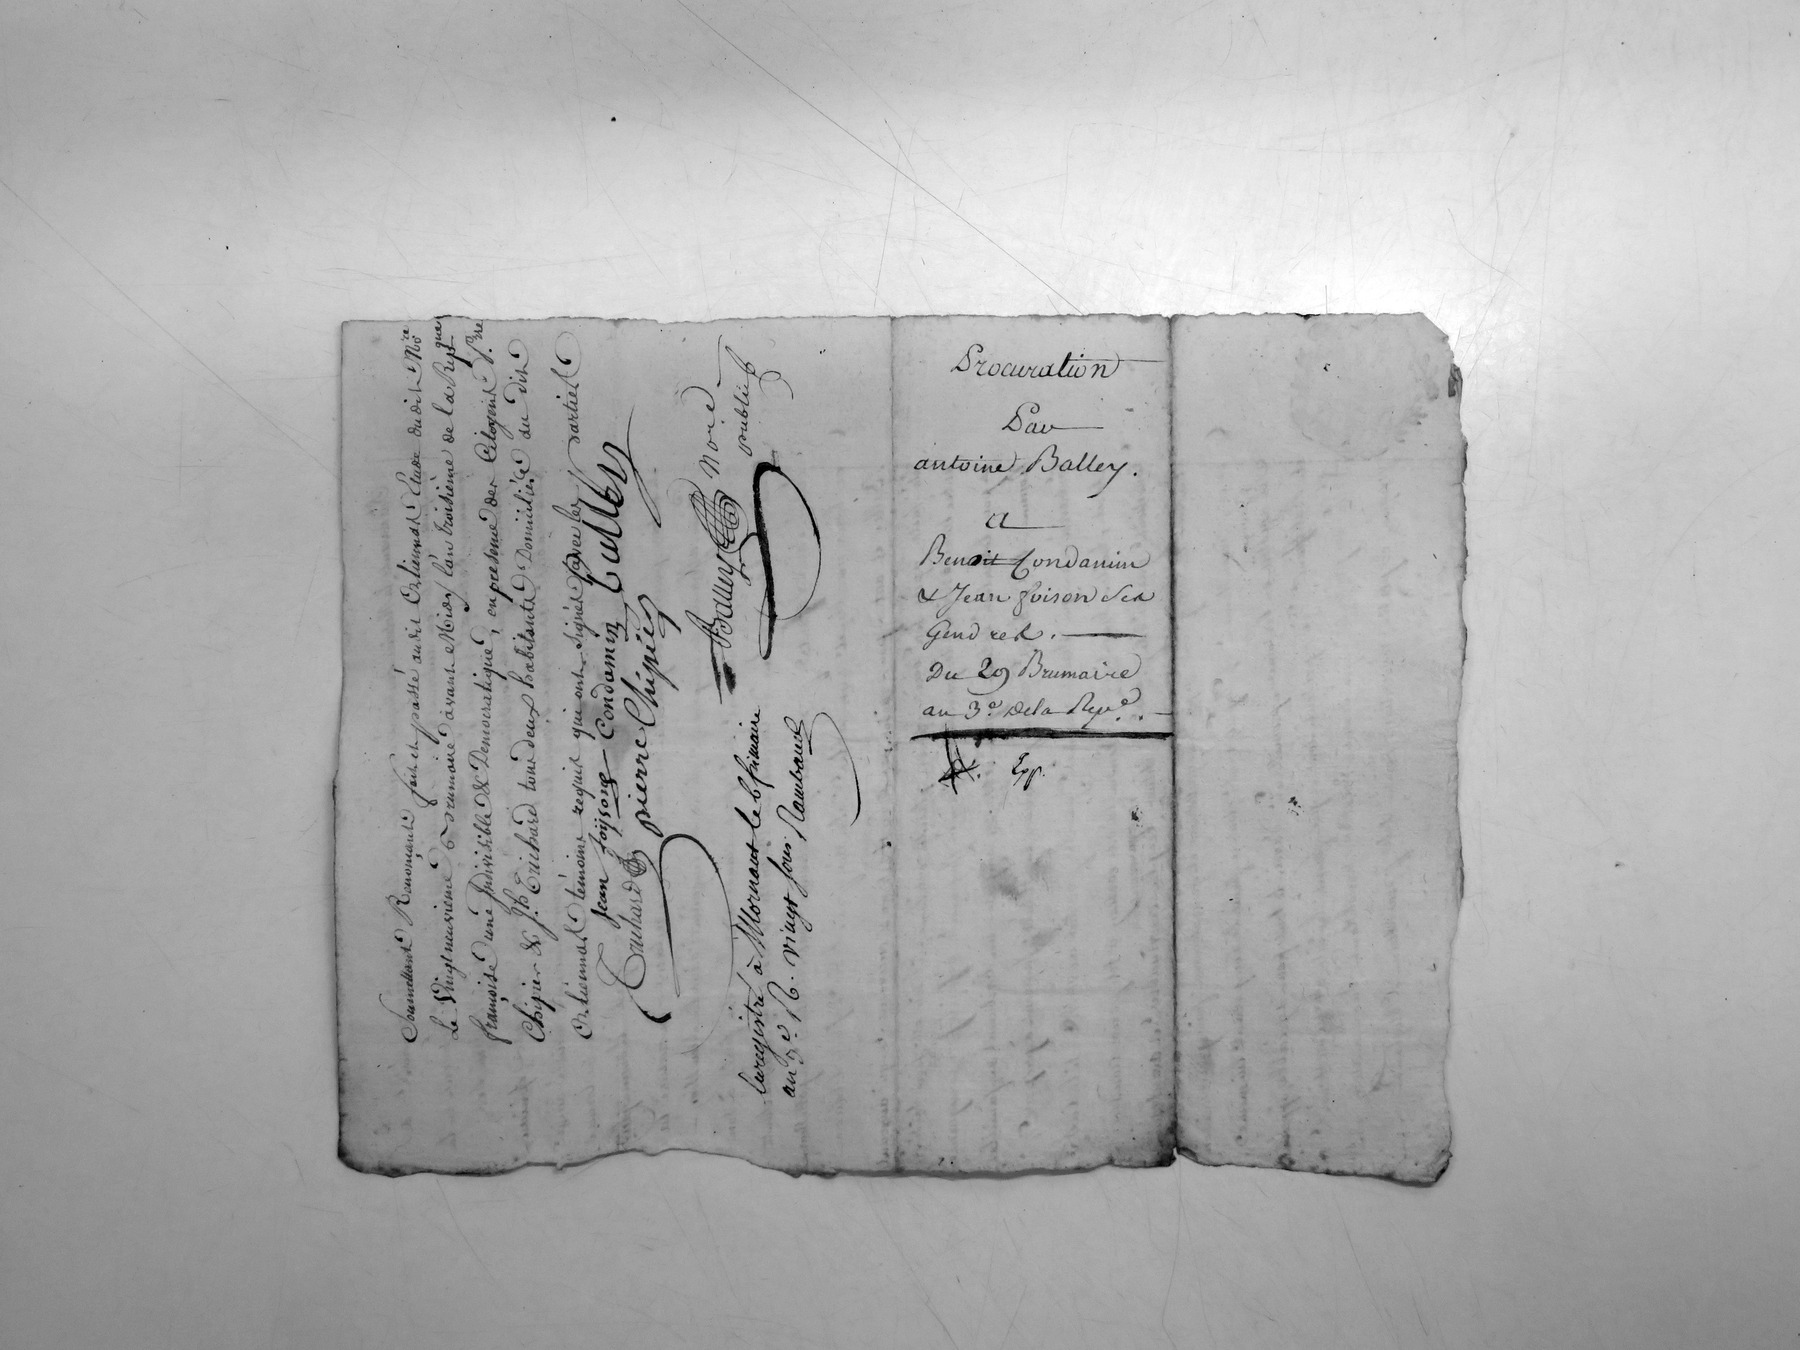 Soumettant Renonçant fait et passé audit Orlienas Etude dudit No.re
Le Vingt neuvieme Brumaire avant Midy l'an troisième de la Rep.que
françoise une Indivisible & Democratique, en presence des Citoyens P.rre
Chipier & Jh. Truchard tous deux habitants Domiciliés du dit
Orlienas témoins requis qui ont signés avec les parties
Jean foÿson Condamin Balley
Truchard pierre Chipier
Balley No.re publicq
Enregistré à Mornant le 6 frimaire
an 3.e R. vingt sous Rambaud
Procuration
Par
antoine Balley.
a
Benoit Condamin
& Jean foison ses
Gendres.
Du 29 Brumaire
an 3.e de la Rep.e.
Exp.